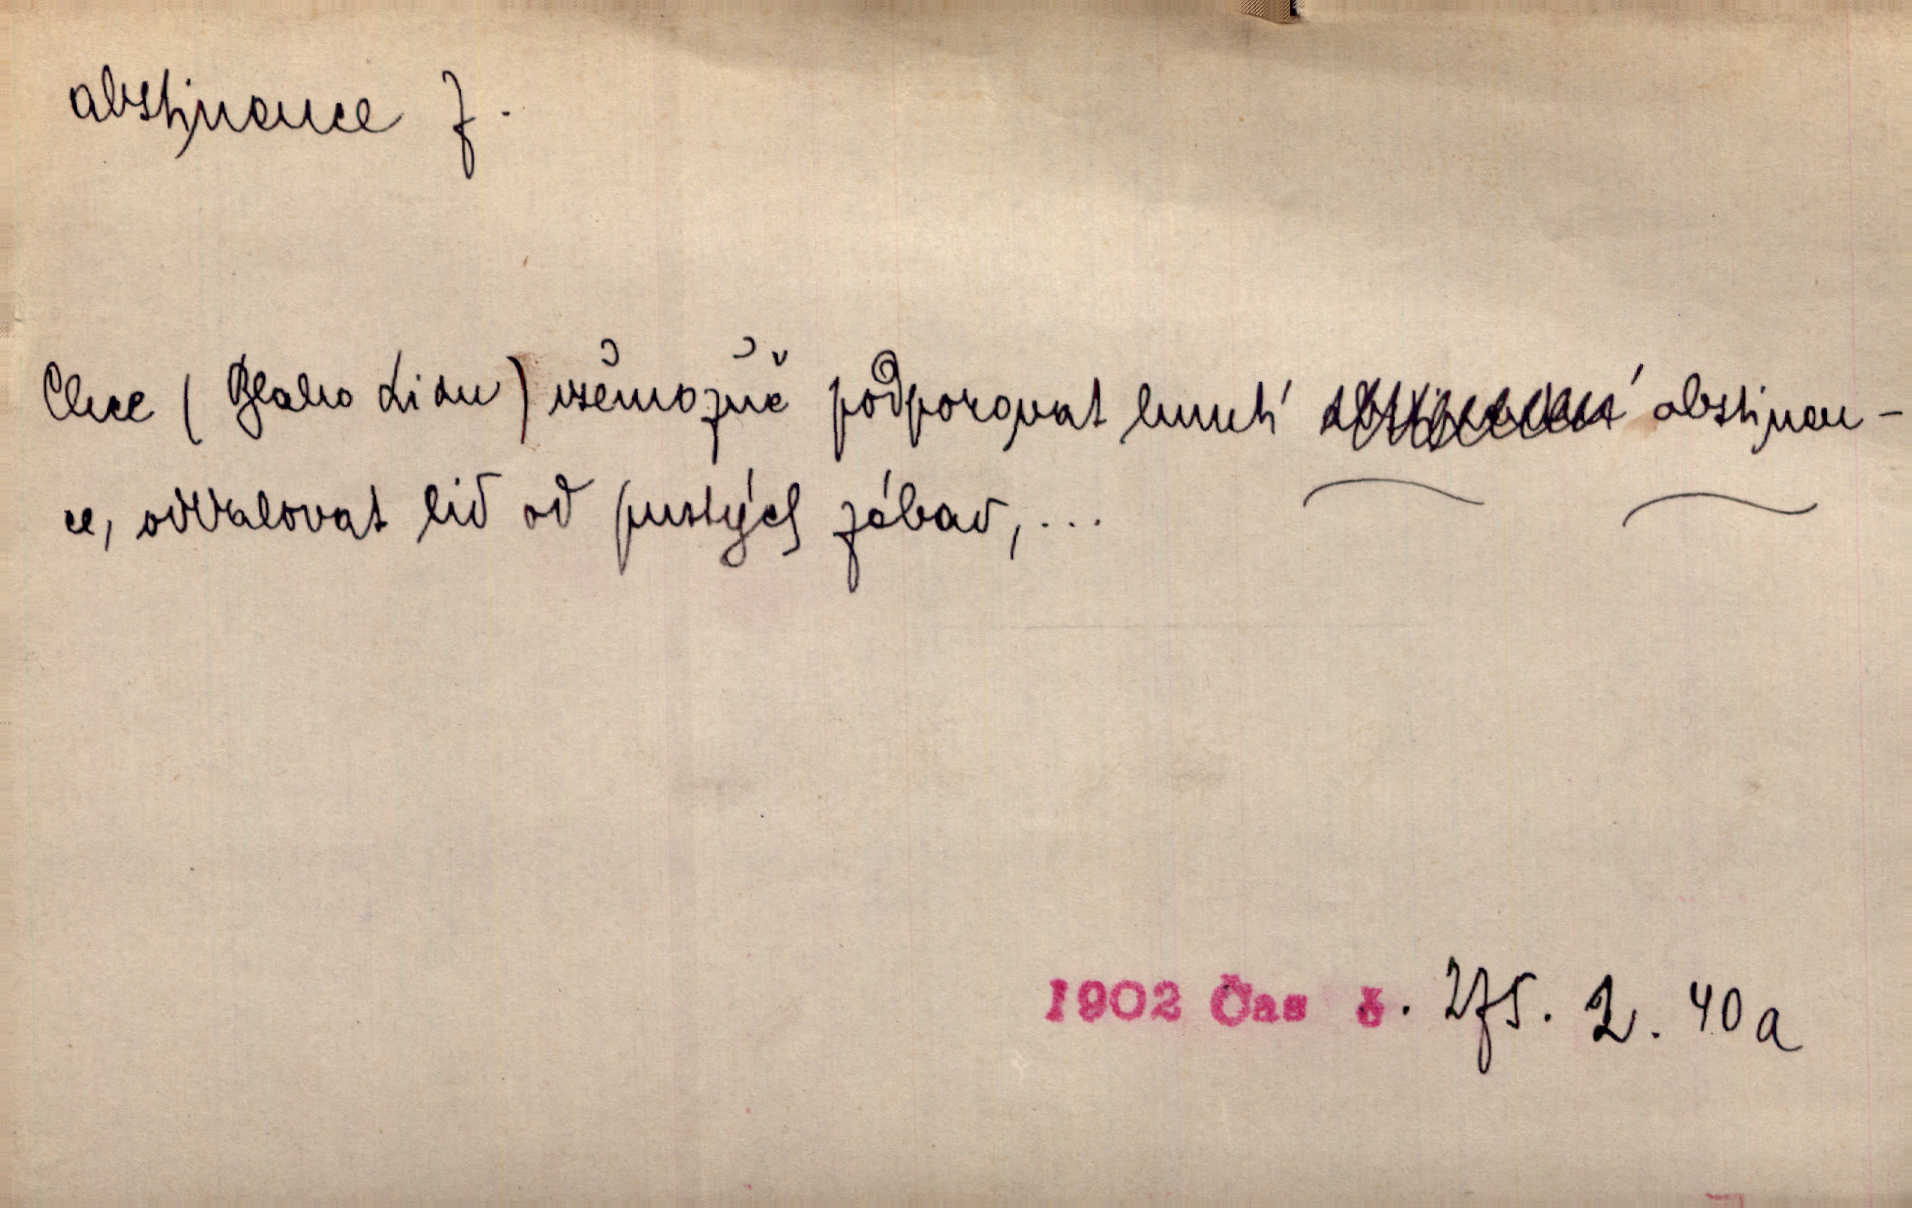 abstinence f.
Chce (Blaho Lidu) všemožně podporovat hnutí abstinen-
ce, odvalovat lid od pustých zábav, ...
1902 Čas č. 275. 2. 40a